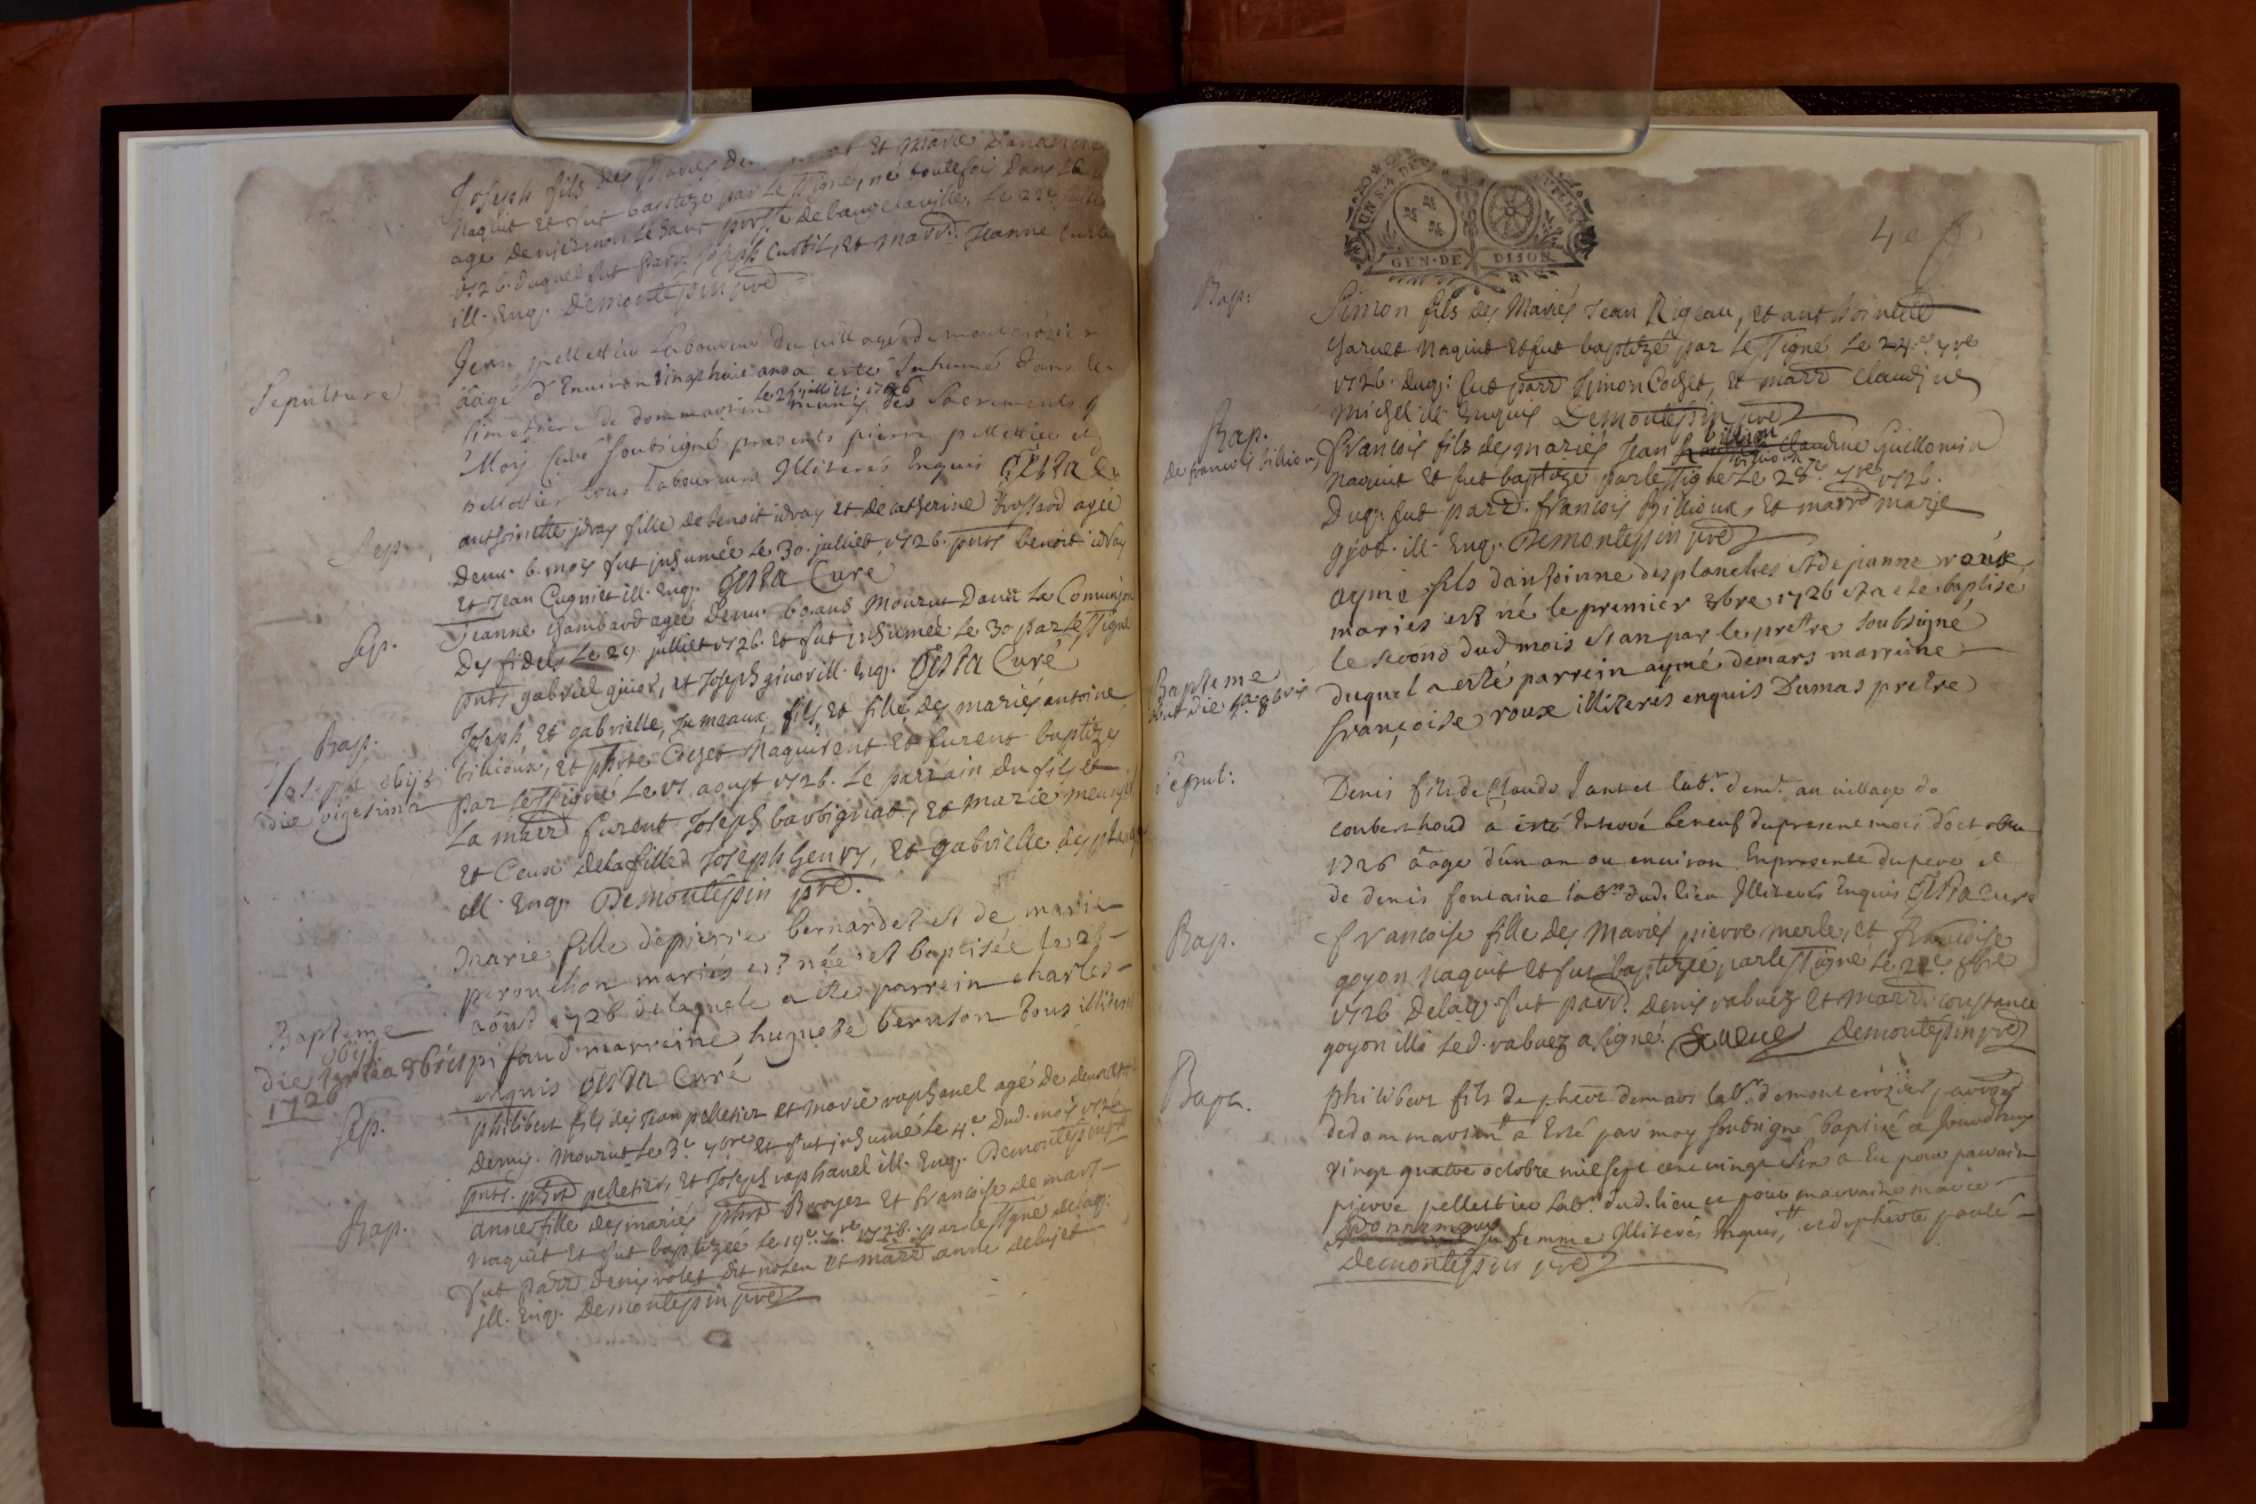 Joseph fils des Mariés de et Marie
Naquit et fut baptizé par le ssigné, né toutefois dans le
age de
1726. duquel fut parr. Joseph Curtil, et marr. Jeanne
ill. Enq. Demontessin pre
Sepulture
Jean pellettier Laboureur du village de montcrozier
âagé d'Environ vingthuit ans a esté Inhumé dans le
simetiere de dommartin munis des Sacrements
le 26 juillet 1726
Moy Curé soubsigné presents pierre pellettier et
pellettier tous Laboureurs Illiterés Enquis Testa
Sep.
anthoinette jdray fille de benoit idray et de catherine brossard agée
denv. 6. mois fut inhumée le 30. julliet 1726. pnts benoit idray
et Jean Cugniet ill. Enq. Testa Curé
Sep.
Jeanne Chambard agée denv. 60 ans Mourut Dans La Comunion
Des fidels Le 29. julliet 1726. et fut inhumée Le 30 par le ssigné
pnts gabriel givor, et Joseph givor ill. Enq. Testa Curé
Bap.
Joseph obijt
die vigesima
Joseph et gabrielle, Jumeaux, fils, et fille des mariés antoine
billioux, et phte Cochet Naquirent et furent baptizés
par le ssigné Le 17 aoust 1726. Le parrain du fils et
La marr furent Joseph barbignat, et Marie
et Ceux de la fille Joseph Genry, et gabrielle
ill. Enq. Demontessin pre.
Bapteme
obijt
die tertia 8bris
1726
Marie fille de pierre bernardet et de marie
perruchon mariés est née et baptisée le 28
aôut 1726 de laquele a ete parrein charles
pifaud marreine huguete beruson tous illiteres
enquis Testa Curé
Sep.
philibert fils des Jean pelletier et Marie raphanel agé de deux
Demy. Mourut Le 3e 7bre et fut inhumé Le 4e Dud. mois 1726
pnts. phrd pelletier, et Joseph raphanel ill. Enq. Demontessin pre
Bap.
anne fille des mariés phrd Broyer et francoise demars
naquit et fut baptizée Le 19e 7re 1726. par le ssigné delaq.
fut parr Denis volet dit noseu et marr anne debyset
ill. Enq. Demontessin pre
4e f
GEN. DE DIJON
Bap:
Simon fils des Mariés Jean Rigeau, et anthoinette
Charuet Naquit et fut baptizé par Le ssigné Le 24e 7re
1726. duq. fut parr Simon Cochet, et marr Claudine
Michel ill. Enquis Demontessin pre
Bap.
de francois billioux
francois fils des mariés Jean billioux Claudine Guillomin
Naquit et fut baptizé par le ssigné Le 28e 7re 1726.
Duq. fut parr. francois Billioux, et marr marie
gyot. ill. Enq. Demontessin pre
Bapteme
obijt die 4a 8bris
aymé fils d'antoinne desplanches et de jeanne roux
mariés est né le premier 8bre 1726 et a ete baptisé
le second dud mois et an par le prettre soubsigné
duquel a esté parrein aymé demars marreine
françoise roux illiteres enquis Dumas pretre
Sepul:
Denis fils de Claude Janet labr. demt. au village de
couberthoud a êsté Enterré le neuf du present mois d'octobre
1726 âagé d'un an ou environ En presence du pere et
de denis fontaine labr. dud. lieu Illiterés Enquis Testa curé
Bap.
francoise fille des Mariés pierre merle, et francoise
goyon naquit et fut baptizée par le ssigné Le 22e 8bre
1726 Delaq. fut parr. denis rabuez et Marr. constance
goyon ill. Led. rabuez a signé. Demontessin pre
Bapt.
philibert fils de phert demars labr. de montcrozier, parroisse
de dommartin a Esté par moy soubsigné baptisé ce jourdhuy
vingt quatre octobre mil sept cent vingt six a Eu pour parrain
pierre pellettier labr. dud. lieu et pour marraine marie
sa femme Illiterés Enquis, et de pherte paulé
Demontessin pre